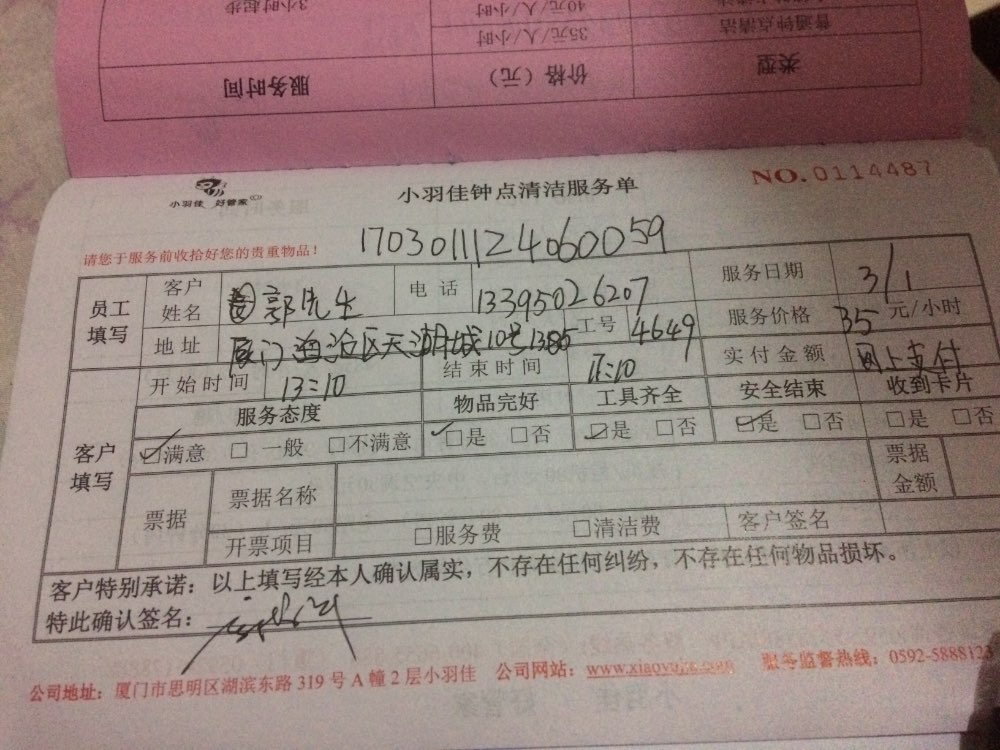 3小时起步
40元/人/小时
普通钟点清洁 35元/人/小时
类型 价格（元） 服务时间
小羽佳 好管家
小羽佳钟点清洁服务单
NO.0114487
请您于服务前收拾好您的贵重物品！
1703011124060059
员工填写 客户姓名 郭先生 电话 13395026207 服务日期 3/1
地址 厦门海沧区天湖城10号1385 工号 4649 服务价格 35元/小时
客户填写 开始时间 13:10 结束时间 17:10 实付金额 网上支付
服务态度 物品完好 工具齐全 安全结束 收到卡片
☑满意 □一般 □不满意 ☑是 □否 ☑是 □否 ☑是 □否 □是 □否
票据 票据名称 票据金额
开票项目 □服务费 □清洁费 客户签名
客户特别承诺：以上填写经本人确认属实，不存在任何纠纷，不存在任何物品损坏。
特此确认签名：
公司地址：厦门市思明区湖滨东路319号A幢2层小羽佳 公司网站： 服务监督热线：0592-5888123